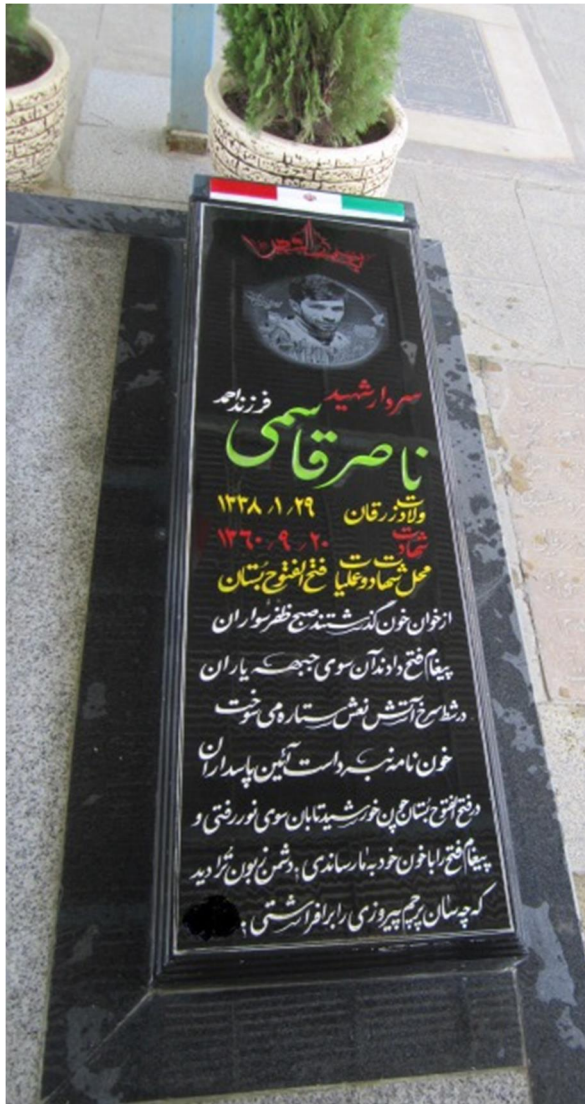 سردار شهید
فرزند احمد
ناصر قاسمی
ولادت زرقان ۱۳۳۸/۱/۲۹
شهادت ۱۳۶۰/۹/۲۰
محل شهادت و عملیات فتح الفتوح بستان
از خوان خون گذشتند صبح ظفر سواران
پیغام فتح دادند آن سوی جبهه یاران
در شط سرخ آتش نعش ستاره می سوخت
خون نامه نبرد است آئین پاسداران
در فتح الفتوح بستان چون خورشید تابان سوی نور رفتی و
پیغام فتح را با خون خود به ما رساندی، دشمن زبون تو را دید
که چه سان پرچم پیروزی را برافراشتی،